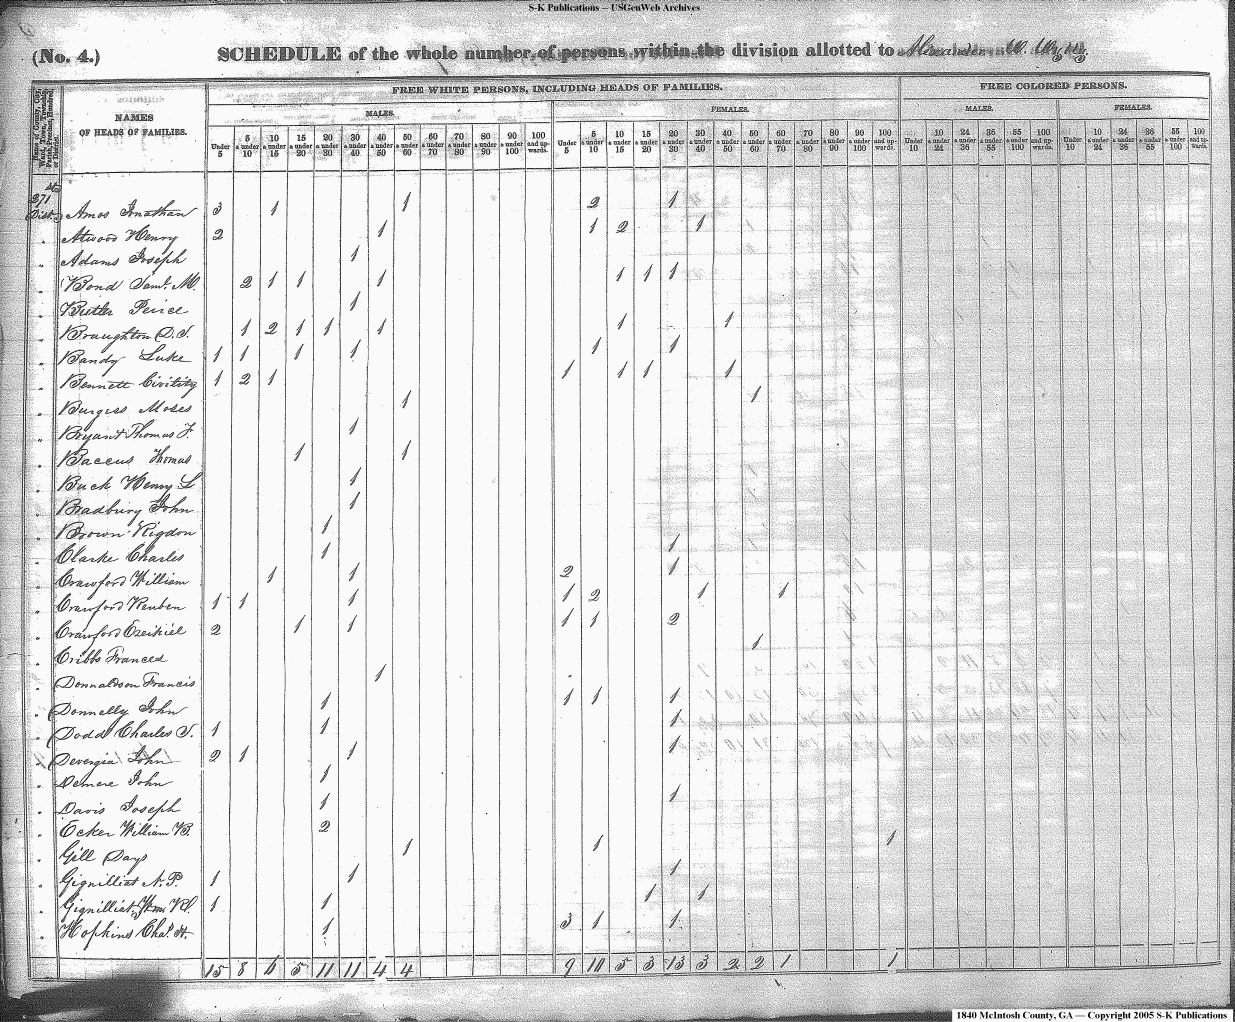 S-K Publications – USGenWeb Archives
(No. 4.) SCHEDULE of the whole number of persons within the division allotted to Alexander W. Wylly
Name of County, City, Ward, Town, Township, Parish, Precinct, Hundred, or District.
NAMES OF HEADS OF FAMILIES.
FREE WHITE PERSONS, INCLUDING HEADS OF FAMILIES.
FREE COLORED PERSONS.
MALES.
FEMALES.
MALES.
FEMALES.
Under 5 | 5 & under 10 | 10 & under 15 | 15 & under 20 | 20 & under 30 | 30 & under 40 | 40 & under 50 | 50 & under 60 | 60 & under 70 | 70 & under 80 | 80 & under 90 | 90 & under 100 | 100 and upwards.
Under 5 | 5 & under 10 | 10 & under 15 | 15 & under 20 | 20 & under 30 | 30 & under 40 | 40 & under 50 | 50 & under 60 | 60 & under 70 | 70 & under 80 | 80 & under 90 | 90 & under 100 | 100 and upwards.
Under 10 | 10 & under 24 | 24 & under 36 | 36 & under 55 | 55 & under 100 | 100 and upwards.
Under 10 | 10 & under 24 | 24 & under 36 | 36 & under 55 | 55 & under 100 | 100 and upwards.
271 Dist. Amos Jonathan 3 1 1 2 1
Atwood Henry 2 1 1 2 1
Adams Joseph 1
Bond Saml. M. 2 1 1 1 1 1 1
Butler Peirce 1
Broughton D. J. 1 2 1 1 1 1 1
Bandy Luke 1 1 1 1 1 1
Bennett Civility 1 2 1 1 1 1 1
Burgess Moses 1 1
Bryant Thomas F. 1
Baccus Thomas 1 1
Back Henry L 1
Bradbury John 1
Brown Rigdon 1
Clarke Charles 1 1
Crawford William 1 1 2 1
Crawford Reuben 1 1 1 1 2 1 1
Crawford Ezekiel 2 1 1 1 1 2
Cribbs Franced 1
Donnaldson Francis 1
Donnelly John 1 1 1 1
Dodd Charles S. 1 1 1
Devergia John 2 1 1 1
Demere John 1
Davis Joseph 1 1
Ecker William B. 2
Gill Days 1 1 1
Gignilliat N. P. 1 1 1
Gignilliat Wm R. 1 1 1 1
Hopkins Chas. H. 1 3 1 1
15 8 6 5 11 11 4 4 9 10 5 3 13 3 2 2 1 1
1840 McIntosh County, GA — Copyright 2005 S-K Publications